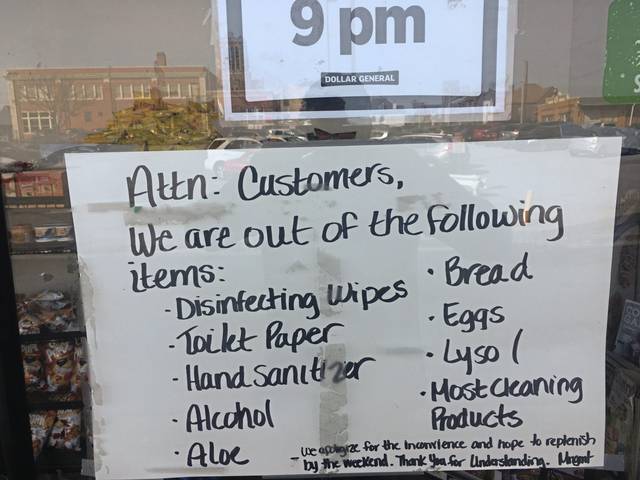 9 pm
DOLLAR GENERAL
Attn: Customers,
We are out of the following
items:
- Disinfecting Wipes
- Toilet Paper
- Hand Sanitizer
- Alcohol
- Aloe
• Bread
• Eggs
• Lysol
• Most Cleaning
Products
- We apologize for the Inconvience and hope to replenish
by the weekend. Thank You for Understanding. Mngmt